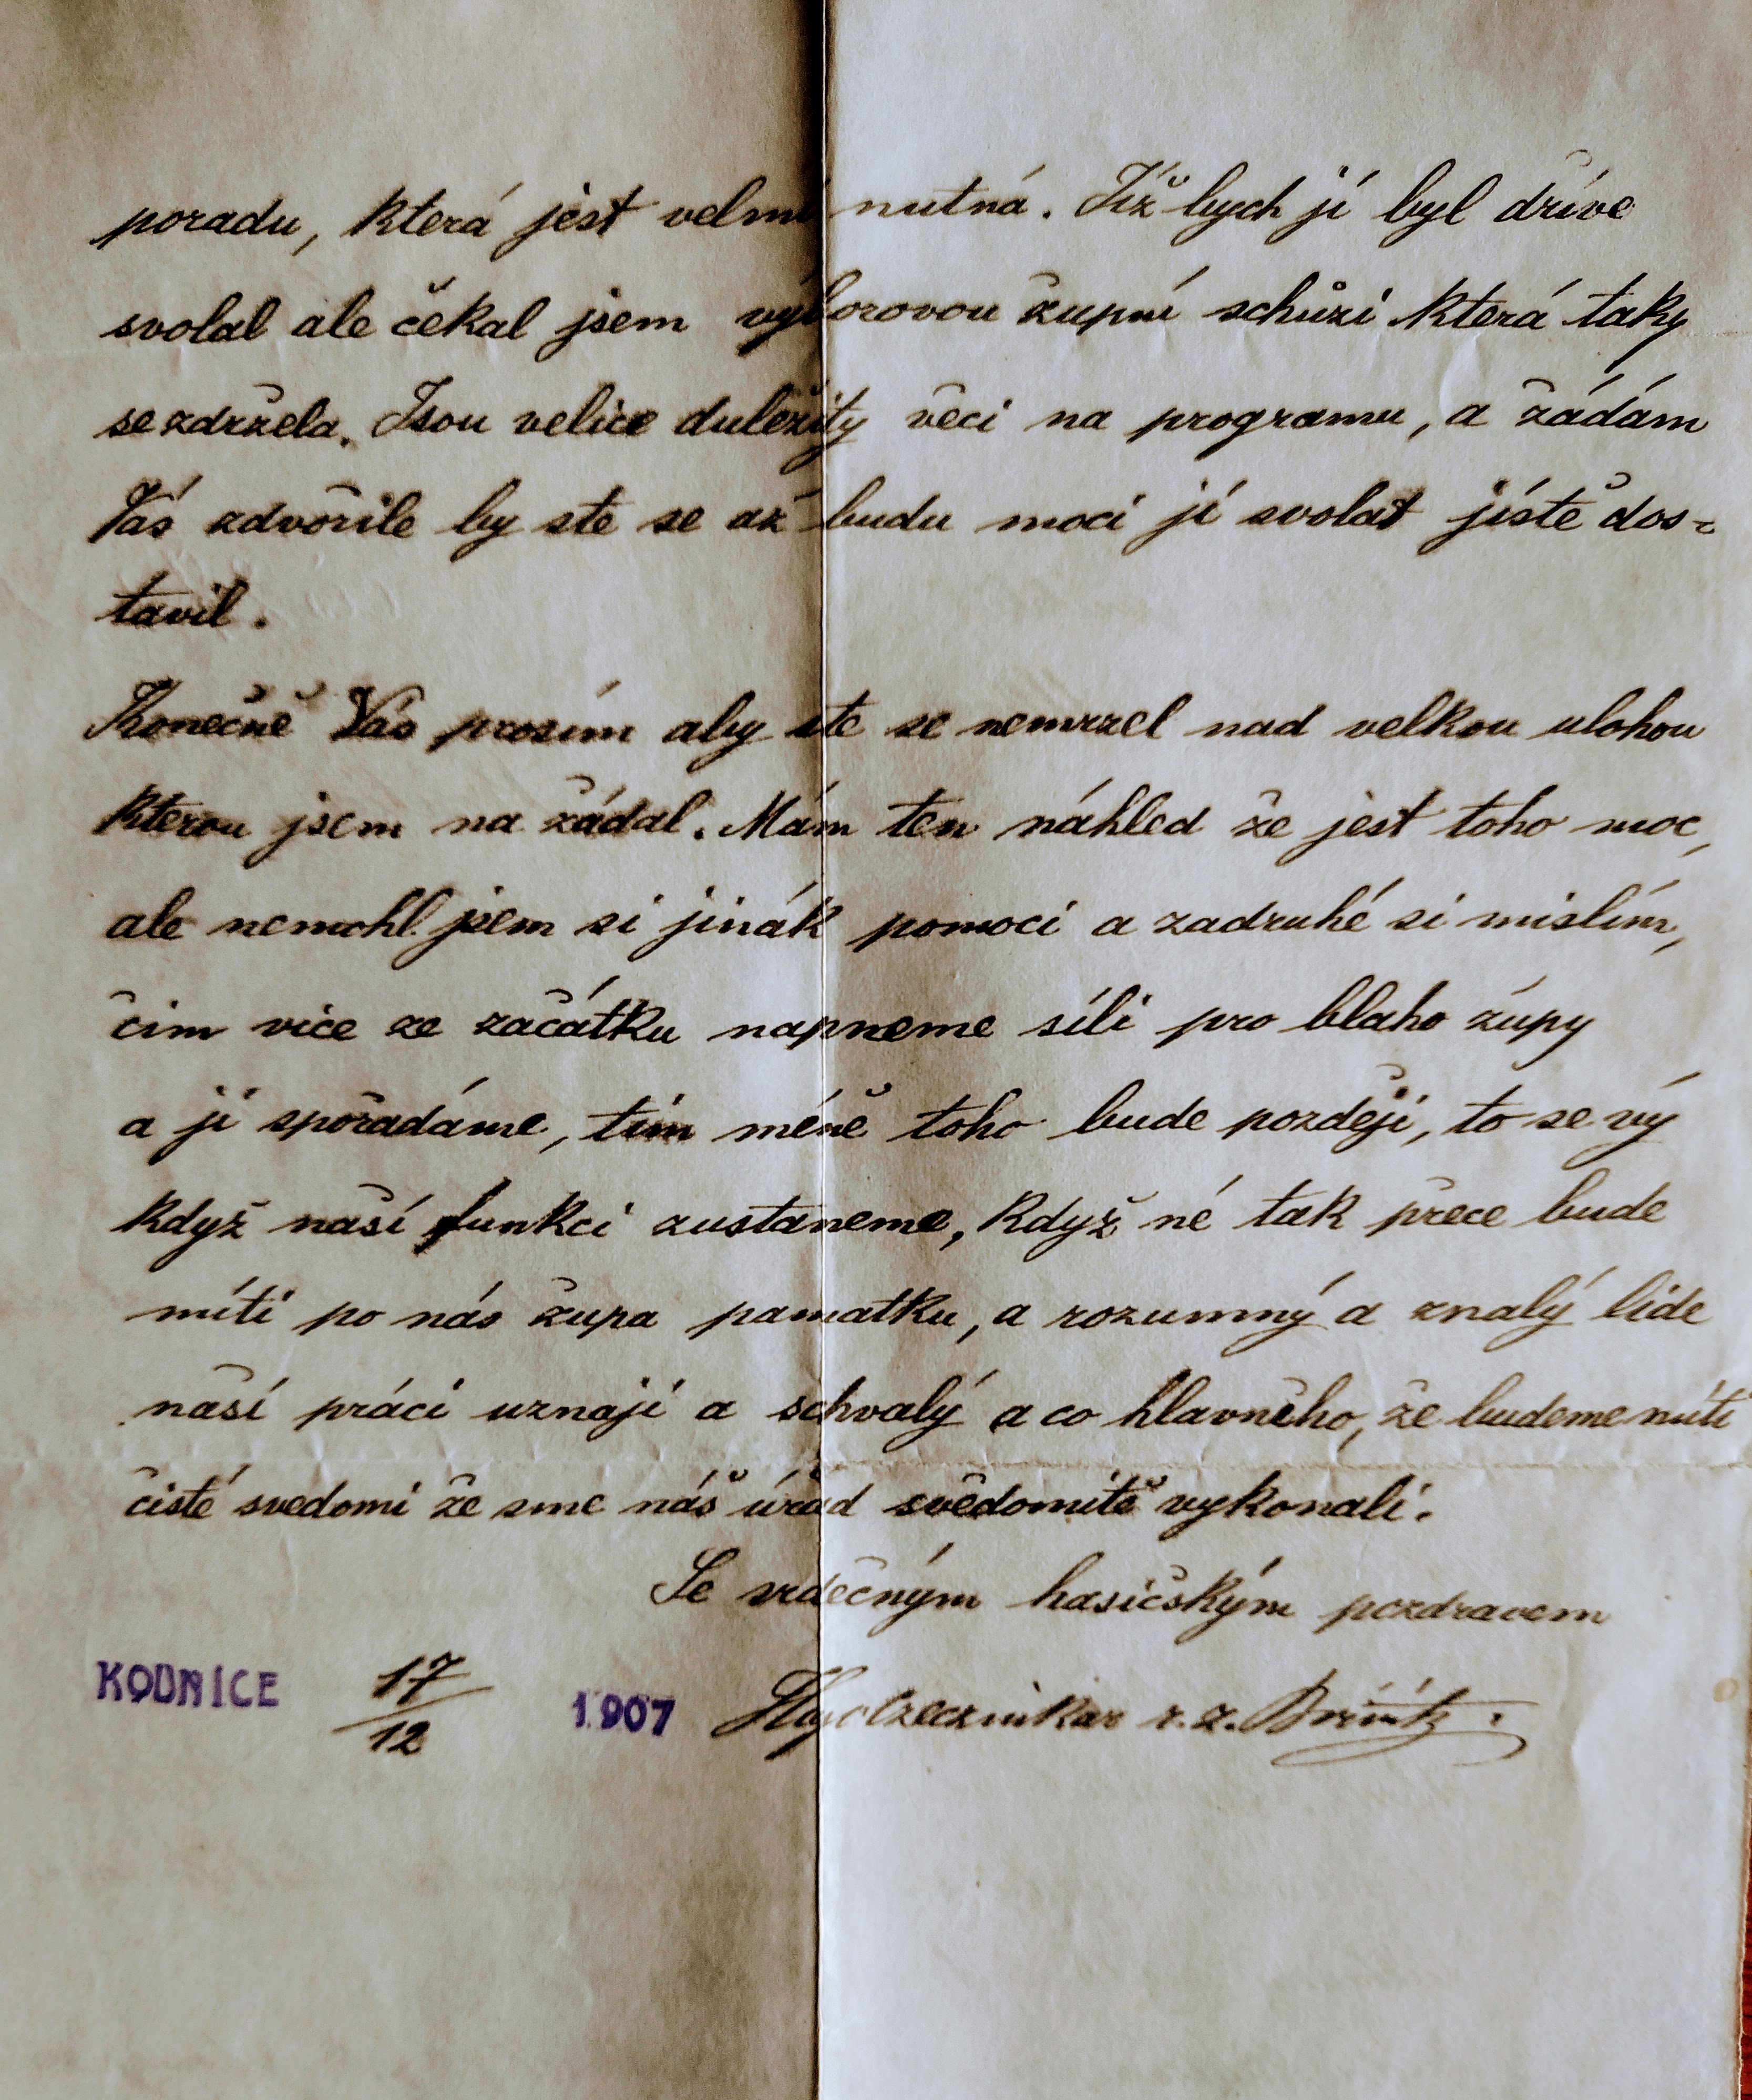 poradu, která jest velmi nutná. Již bych jí byl dříve
svolal ale čekal jsem výborovou župní schůzi která taky
se zdržela. Jsou velice duležity věci na programu, a žádám
Vás zdvořile by ste se až budu moci jí svolat jístě dos=
tavil.
Konečně Vás prosím aby ste se nemrzel nad velkou ulohou
kterou jsem na žádal. Mám ten náhled že jest toho moc,
ale nemohl jsem si jinák pomoci a zadruhé si mislím,
čim více ze začátku napneme síli pro blaho župy
a jí spořadáme, tím méně toho bude později, to se vý
když naší funkci zustaneme, když né tak přece bude
míti po nás župa pamatku, a rozumný a znalý lide
naší práci uznají a schvalý a co hlavněho, že budeme míti
čisté svedomi že sme náš úřad svědomitě vykonali.
Se srdečným hasičským pozdravem
KOUNICE 17/12 1907